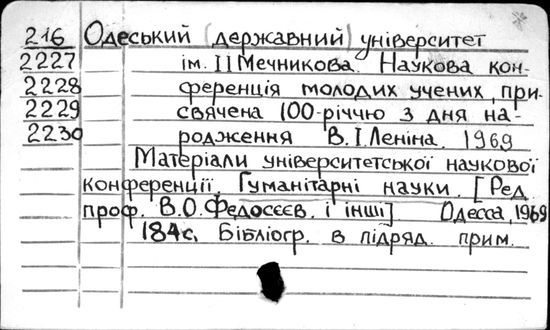 216 Одеський (державний) університет
2227 ім. І І Мечникова. Наукова кон-
2228 ференція молодих учених, при-
2229 свячена 100-річчю з дня на-
2230 родження В. І. Леніна. 1969
Матеріали університетської наукової
конференції. Гуманітарні науки. [Ред.
проф. В. О. Федосєєв. і інші] Одесса, 1969
184с. Бібліогр. в підряд. прим.